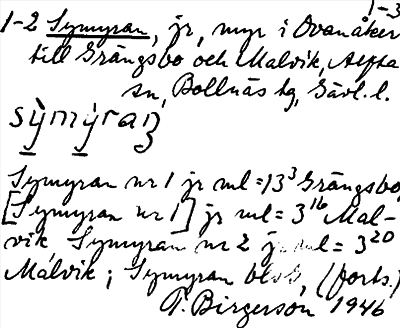 1-3
1-2 Symyran, jr, myr i Ovanåker
till Grängsbo och Malvik, Alfta
sn, Bollnäs tg, Gävl. l.
sỳmýraɳ
Symyran nr 1 jr ml = 13³ Grängsbo,
[Symyran nr 1] jr ml = 3¹⁶ Mal-
vik, Symyran nr 2 jr ml = 3²⁰
Malvik; Symyran (forts.)
P. Birgerson 1946